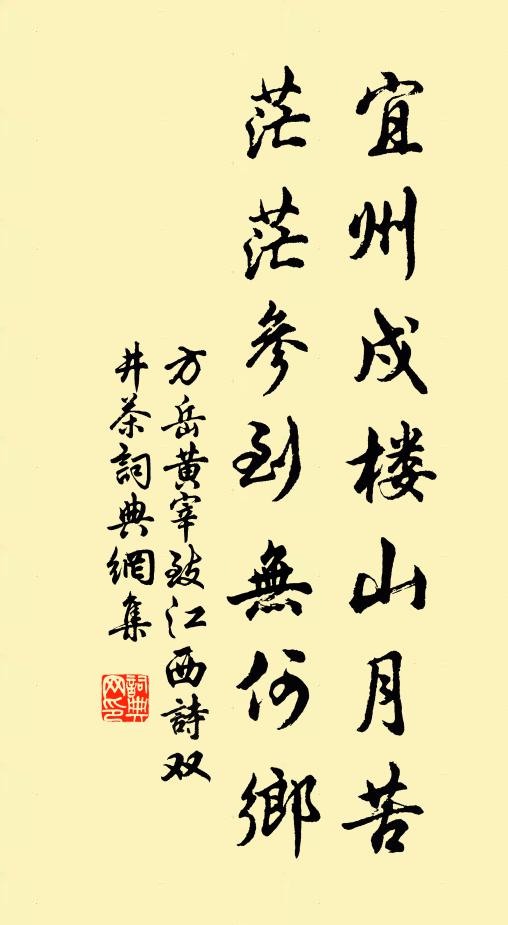 宜州戍楼山月苦
茫茫參到無何鄉
方岳黄宰致江西詩双
井茶詞典網集
詞典
网印